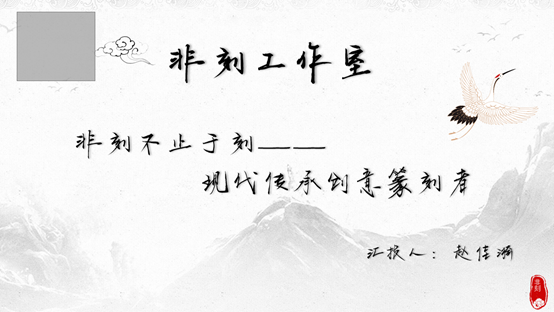 非刻工作室
非刻不止于刻——
现代传承创意篆刻者
汇报人：赵佳